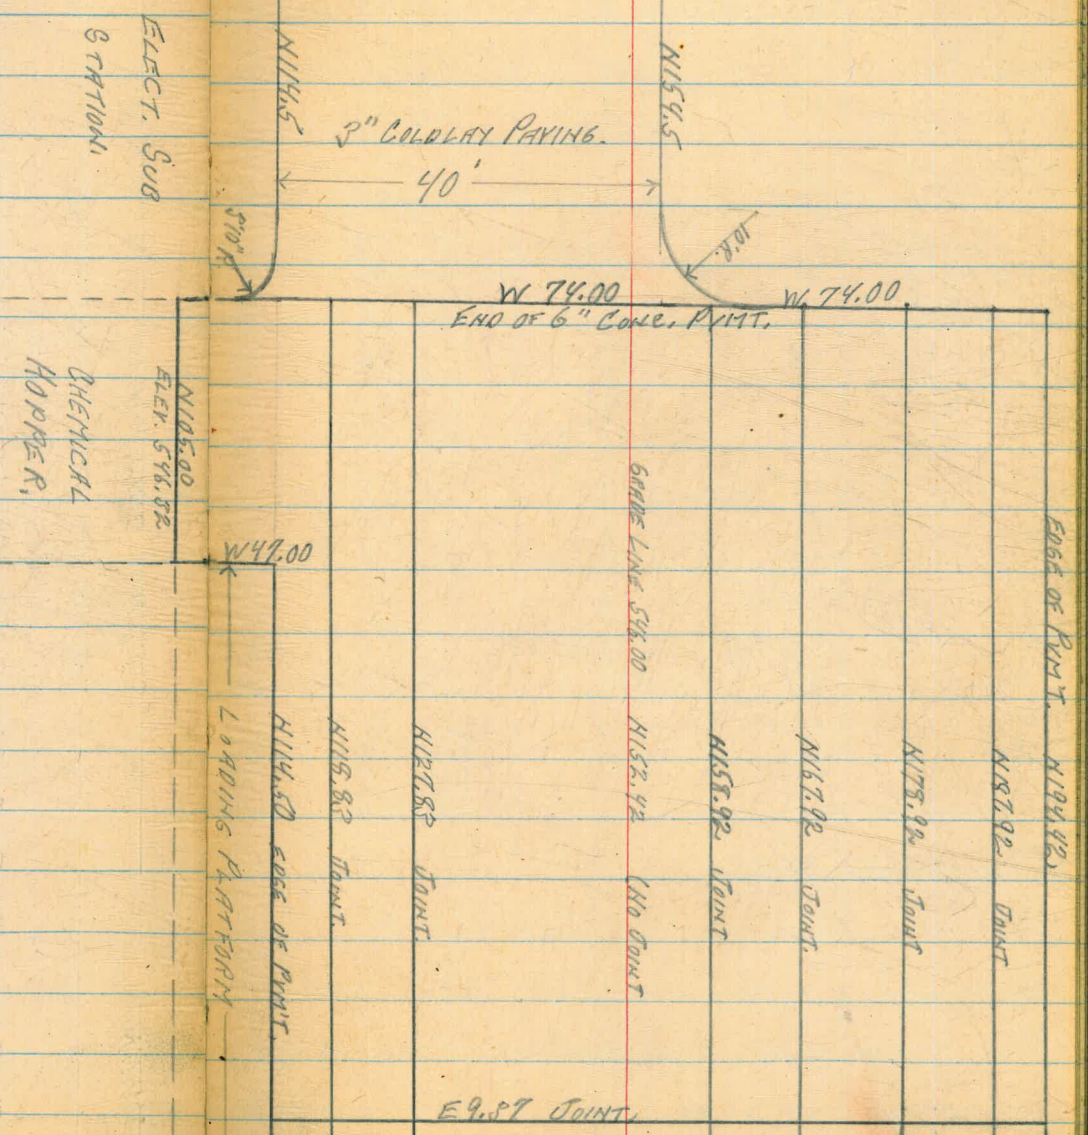 ELECT. SUB
STATION.
N114.5
3" COLDLAY PAVING.
40'
N154.5
10'R.
W 74.00
W. 74.00
END OF 6" CONC. PVMT.
CHEMICAL
HOPPER.
N105.00
ELEV. 546.82
W47.00
LOADING PLATFORM
N114.50 EDGE OF PVM'T.
N118.83 JOINT.
N127.83 JOINT.
GRADE LINE 546.00 N152.42 (NO JOINT
N158.92 JOINT
N167.92 JOINT.
N178.92 JOINT
N187.92 JOINT
EDGE OF PVMT. N194.42
E9.87 JOINT.